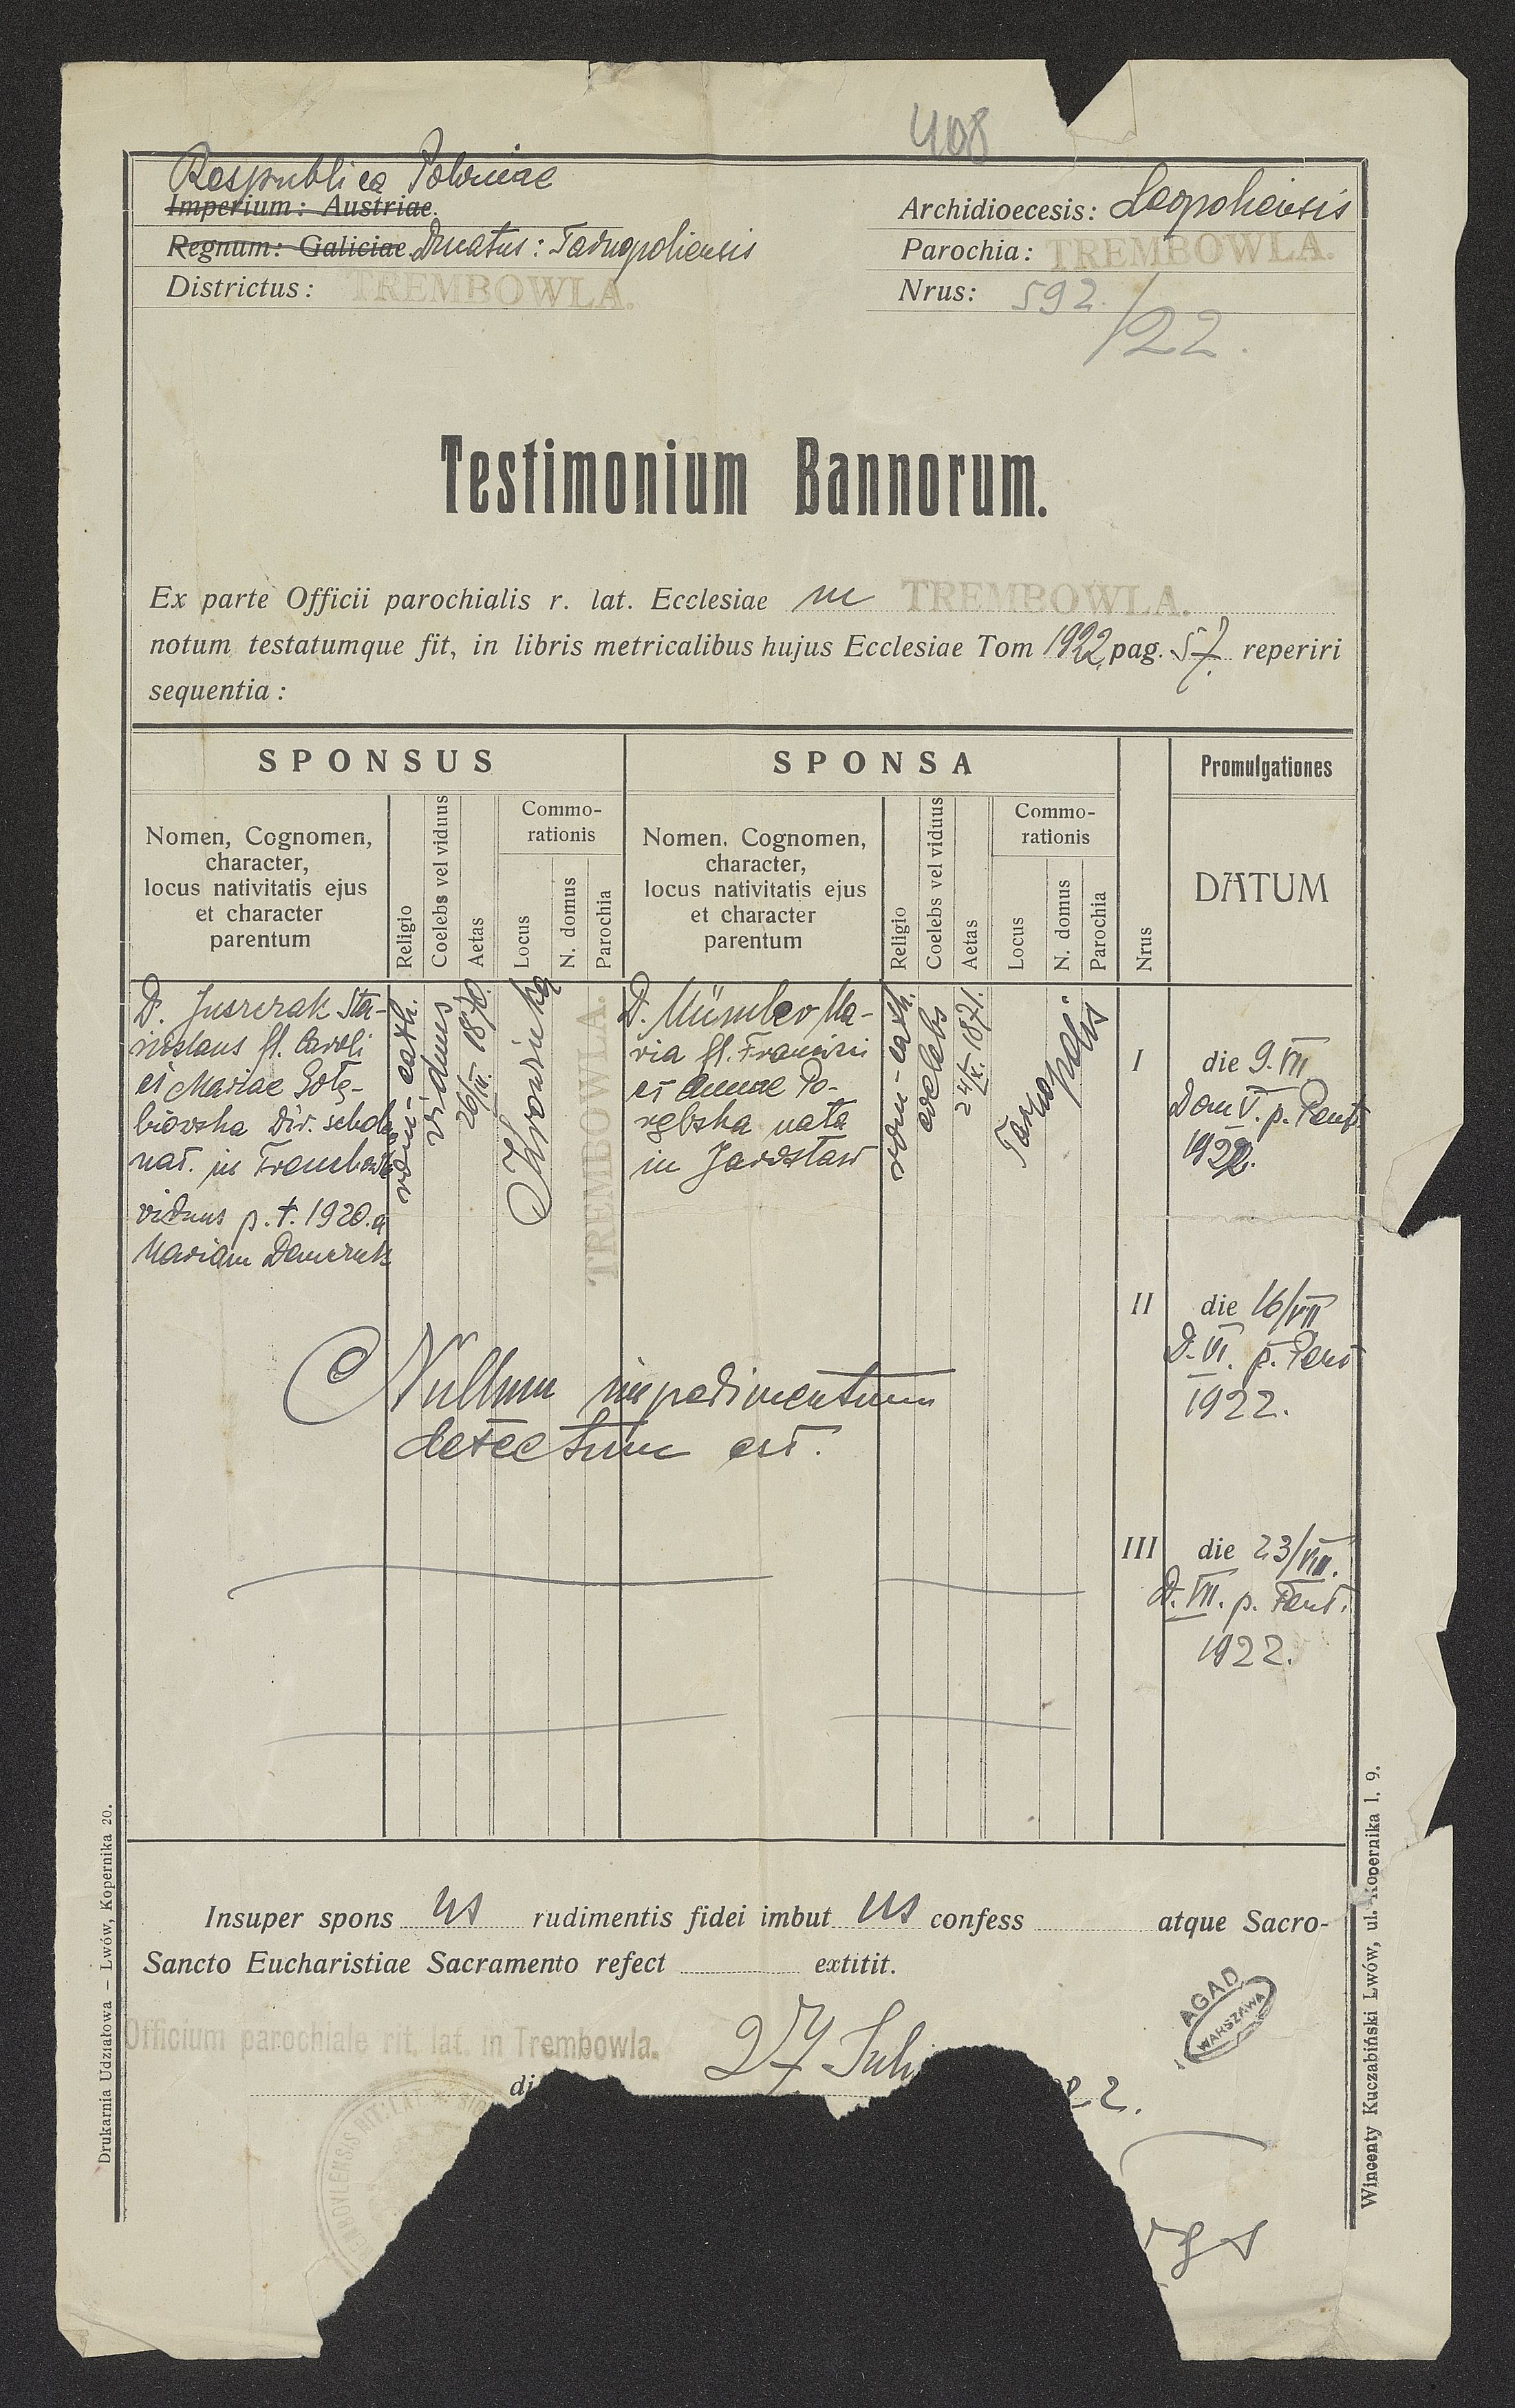 408
Respublica Poloniae
Imperium: Austriae.
Archidioecesis: Leopoliensis
Regnum: Galiciae Ducatus: Tarnopoliensis
Parochia: TREMBOWLA.
Districtus: TREMBOWLA.
Nrus: 592./22.
Testimonium Bannorum.
Ex parte Officii parochialis r. lat. Ecclesiae in TREMBOWLA.
notum testatumque fit, in libris metricalibus hujus Ecclesiae Tom 1922, pag. 57. reperiri
sequentia:
SPONSUS
SPONSA
Nrus
Promulgationes
Nomen, Cognomen,
character,
locus nativitatis ejus
et character
parentum
Religio
Coelebs vel viduus
Aetas
Commo-
rationis
Locus
N. domus
Parochia
Nomen. Cognomen,
character,
locus nativitatis ejus
et character
parentum
Religio
Coelebs vel viduus
Aetas
Commo-
rationis
Locus
N. domus
Parochia
DATUM
D. Juszczak Sta-
nislaus fl. Caroli
et Mariae Gołę-
biowska Dir. schol.
nat. in
viduus p. t. 1920. a
Mariam
rom-cath.
viduus
1870.
TREMBOWLA.
D. Münster Ma-
ria fl. Francisci
et Annae Po-
rębska nata
in Jarosław
rom-cath.
coelebs
24/X. 1871.
Tarnopolis.
I die 9. VII
Dom V. p. Pent.
1922.
II die 16/VII
D. VI. p. Pent
1922.
III die 23/VII.
D. VII. p. Pent.
1922.
Nullum impedimentum
detectum est.
Insuper spons us rudimentis fidei imbut us confess atque Sacro-
Sancto Eucharistiae Sacramento refect extitit.
Officium parochiale rit. lat. in Trembowla.
di 27 Juli 22.
AGAD
WARSZAWA
Drukarnia Udziałowa – Lwów, Kopernika 20.
Wincenty Kuczabiński Lwów, ul. Kopernika l. 9.